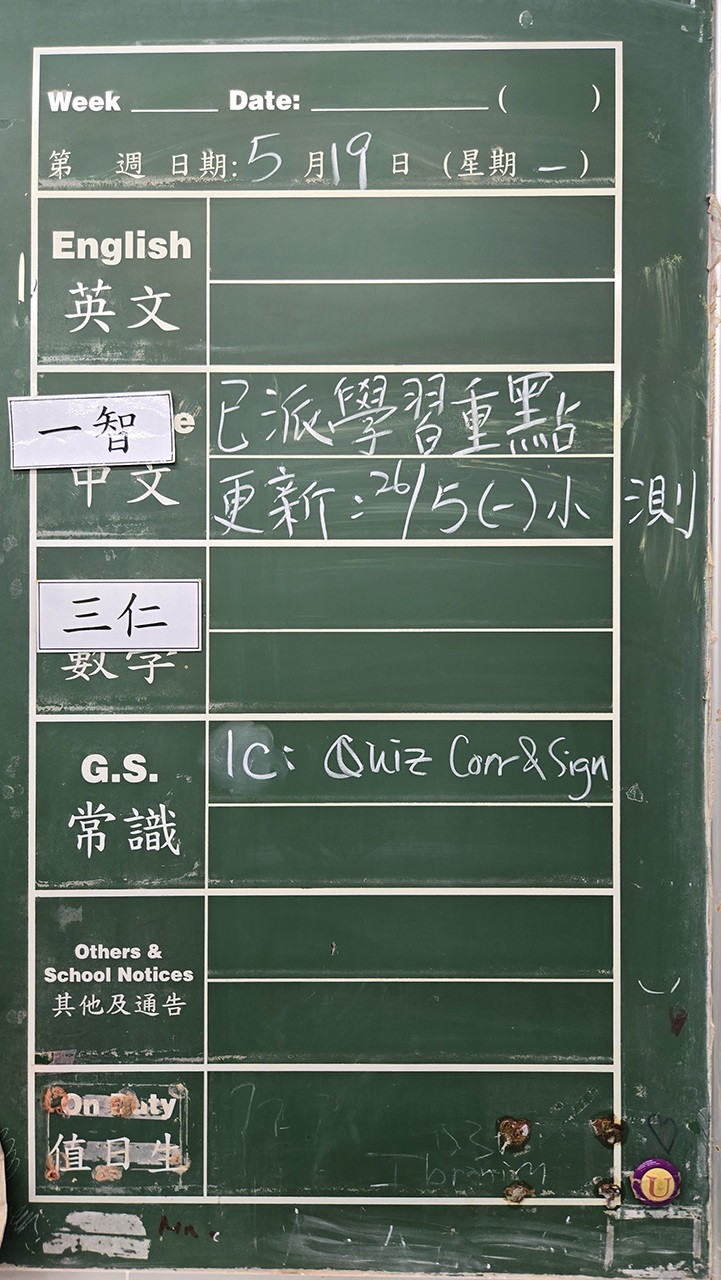 Week ______ Date: ____________ (      )
第 週 日期: 5 月 19 日 (星期 一 )
English
英文
一智
e
中文
已派學習重點
更新：26/5(一)小測
三仁
數學
G.S.
常識
1C: Quiz Corr & Sign
Others &
School Notices
其他及通告
On Duty
值日生
U